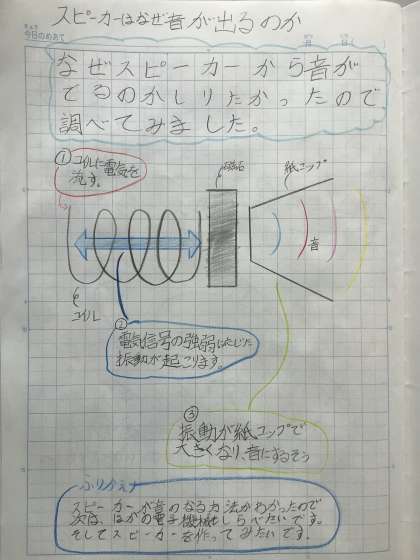 スピーカーはなぜ音が出るのか
今日のめあて
なぜスピーカーから音が
でるのかしりたかったので
調べてみました。
①コイルに電気を
流す。
磁石
紙コップ
音
コイル
②
電気信号の強弱におうじた
振動が起こります。
③
振動が紙コップで
大きくなり、音になるそう
ふりかえり
スピーカーが音のなる方法がわかったので
次は、ほかの電子機械もしらべたいです。
そしてスピーカーを作ってみたいです。